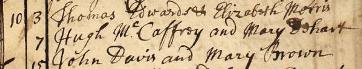 10 3 Thomas Edwards & Elizabeth Morris
7 Hugh McCaffrey and Mary Dehart
15 John Davis and Mary Brown